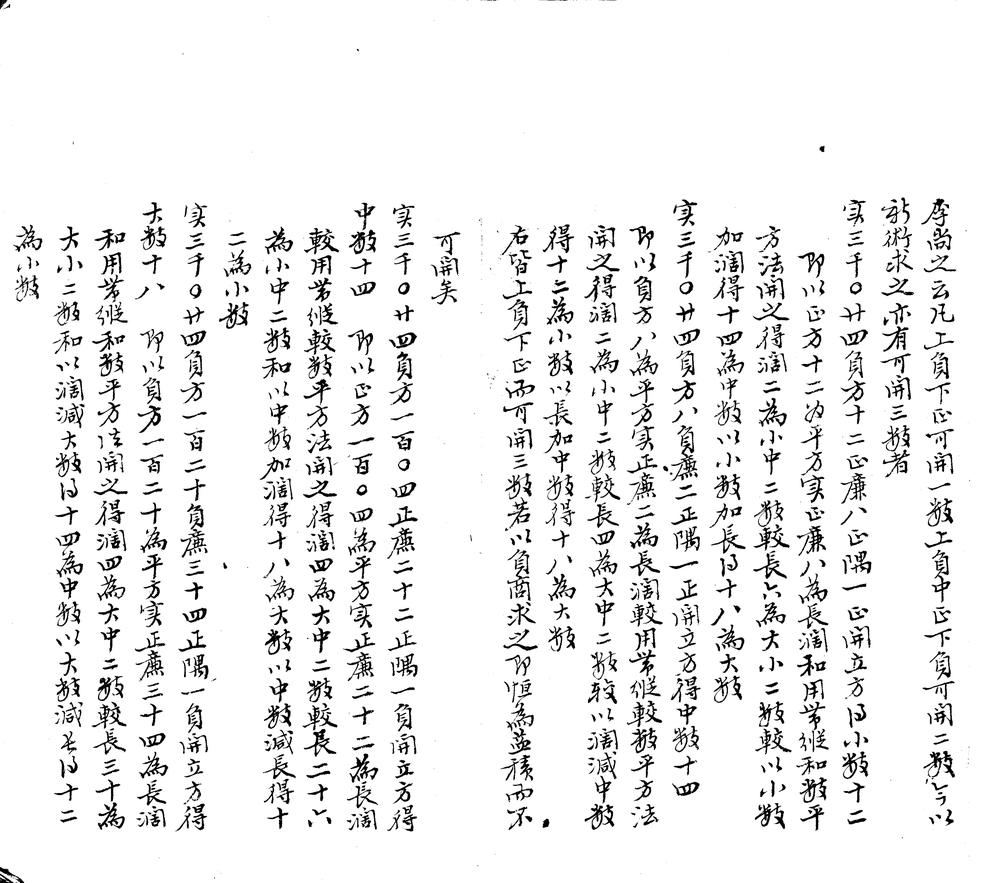 李尚之云凡上負下正可開一数上負中正下負可開二数今以
新術求之亦有可開三数者
实三千〇廿四負方十二正廉八正隅一正開立方得小数十二
即以正方十二为平方实正廉八為長濶和用带縱和数平
方法開之得濶二為小中二数較長六為大小二数較以小数
加濶得十四為中数以小数加長得十八為大数
实三千〇廿四負方八負廉二正隅一正開立方得中数十四
即以負方八為平方实正廉二為長濶較用带縱較数平方法
開之得濶二為小中二数較長四為大中二数較以濶減中数
得十二為小数以長加中数得十八為大数
右皆上負下正而可開三数若以負商求之即恒為益積而不
可開矣
实三千〇廿四負方一百〇四正廉二十二正隅一負開立方得
中数十四 即以正方一百〇四為平方实正廉二十二為長濶
較用带縱較数平方法開之得濶四為大中二数較長二十六
為小中二数和以中数加濶得十八為大数以中数減長得十
二為小数
实三千〇廿四負方一百二十負廉三十四正隅一負開立方得
大数十八 即以負方一百二十為平方实正廉三十四為長濶
和用带縱和数平方法開之得濶四為大中二数較長三十為
大小二数和以濶減大数得十四為中数以大数減長得十二
為小数